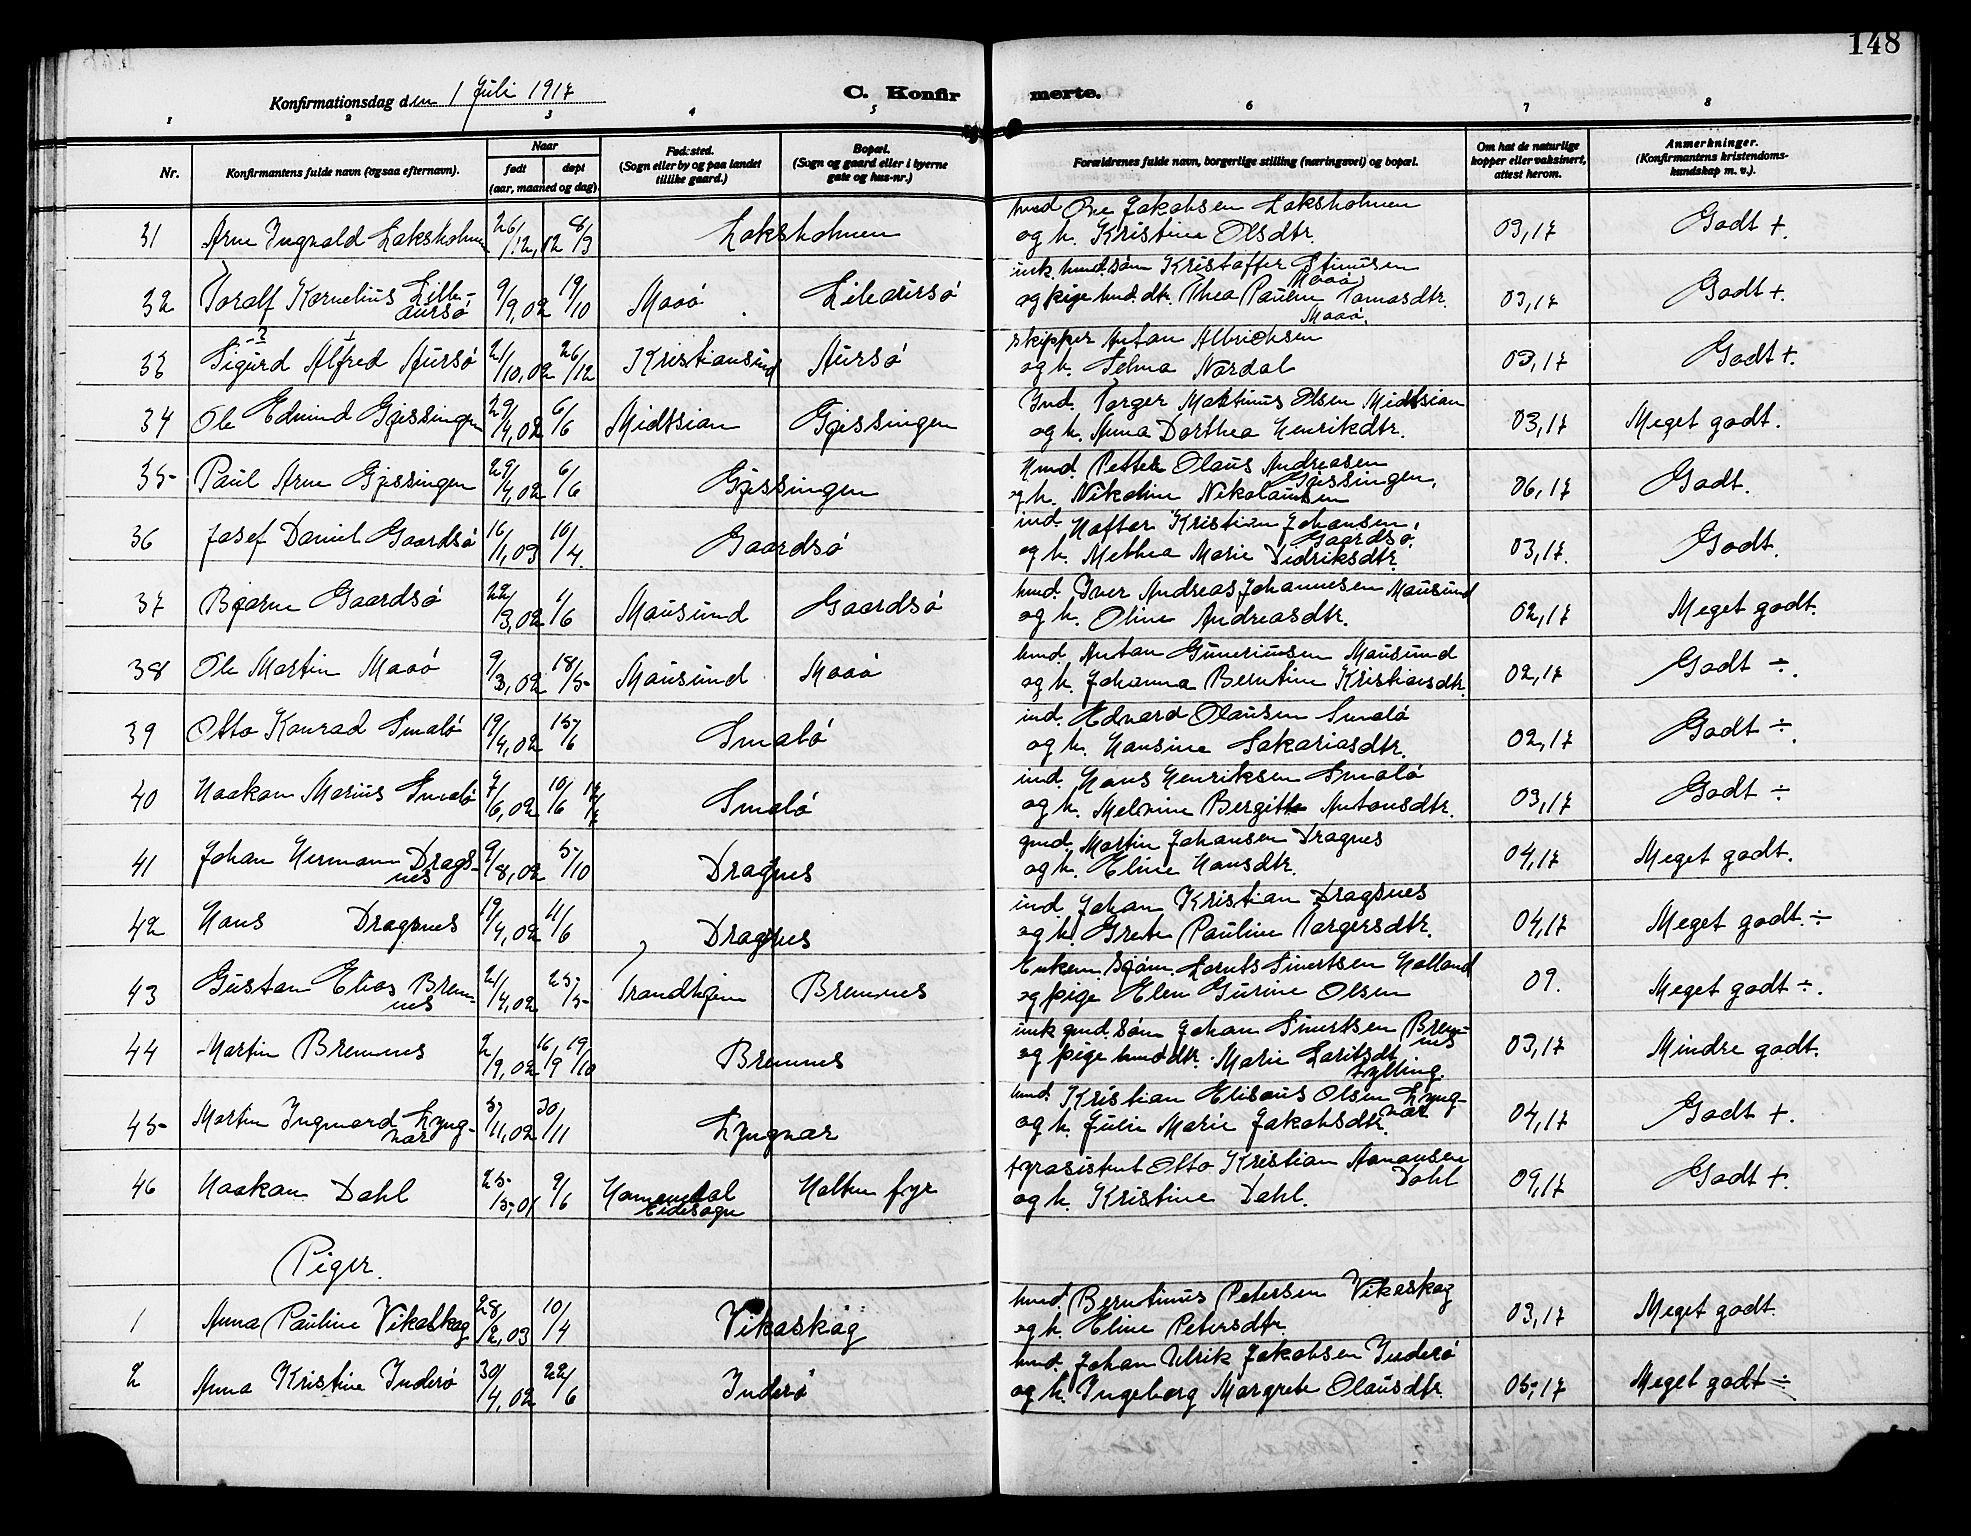 148
Konfirmationsdag den 1 Juli 1917
C. Konfirmerte.
1 2 3 4 5 6 7 8
Nr.
Konfirmantens fulde navn (ogsaa efternavn).
Naar
født døpt
(aar, maaned og dag).
Fødested.
(Sogn eller by og paa landet
tillike gaard.)
Bopæl.
(Sogn og gaard eller i byerne
gate og hus-nr.)
Forældrenes fulde navn, borgerlige stilling (næringsvei) og bopæl.
Om hat de naturlige
kopper eller vaksinert,
attest herom.
Anmerkninger.
(Konfirmantens kristendoms-
kundskap m. v.).
31 Arne Ingvald Laksholmen 26/12, 12 8/3 Laksholmen
hmd Ole Jakobsen Laksholmen
og h. Kristine Olsdtr. 03,17 Godt +.
32 Toralf Kornelius Lille-
aursø 9/9, 02 19/10 Maaø Lilleaursø
ink. hmd. søn Kristoffer Maaø
og pige hmd. dtr. Thea Pauline Tomasdtr.
Maaø. 03,17 Godt +.
33 Sigurd Alfred Aursø 21/10, 02 26/12 Kristiansund Aursø
skipper Anton Albrichsen
og h. Selma Nordal 03,17 Godt +.
34 Ole Edvind Gjessingen 29/4, 02 6/6 Midtsian Gjessingen
Ind. Torger Martinus Olsen Midtsian
og h. Anna Dorthea Henrikdtr. 03,17 Meget godt.
35 Paul Arne Gjessingen 29/4, 02 6/6 Gjessingen
Hmd. Petter Olaus Andreasen
Gjessingen,
og h. Nikoline Nikolaisen 06,17 Godt.
36 Josef Daniel Gaardsø 16/1, 03 10/4. Gaardsø
ind. Hafter Kristian Johansen,
Gaardsø.
og h. Methea Marie Didriksdtr. 03,17. Godt.
37 Bjarne Gaardsø 22/3, 02 1/6 Mausund Gaardsø
hmd. Iver Andreas Johannesen Mausund
og h. Oline Andreasdtr. 02,17 Meget godt.
38 Ole Martin Maaø 9/3, 02 18/5 Mausund Maaø
hmd. Anton Guneriusen Mausund
og h. Johanna Berntine Kristiansdtr. 02,17 Godt ÷.
39 Otto Konrad Smalø 19/4, 02 15/6 Smalø
ind. Edvard Olausen Smalø
og h. Hansine Sakariasdtr. 02,17 Godt ÷.
40 Haakon Marius Smalø 7/6, 02 10/6 Smalø
ind. Hans Henriksen Smalø
og h. Melvine Bergitte Antonsdtr. 03,17 Godt ÷
41 Johan Hermann Drags-
nes 9/8, 02 5/10 Dragnes
gmd. Martin Johansen Dragnes
og h. Eline Hansdtr. 04,17 Meget godt.
42 Hans Dragsnes 19/4, 02 11/6 Dragnes
ind. Johan Kristian Dragsnes
og h. Grete Pauline Torgersdtr. 04,17 Meget godt. ÷
43 Gustav Elias Brem-
nes 21/4, 02 25/5 Trondhjem Bremnes
Enkem. Sjøm. Lornts Sivertsen Holland
og pige Elen Gurine Olsen 09. Meget godt ÷.
44 Martin Bremnes 2/9, 02 16/9 19/10 Bremnes
ink gmd. søn Johan Sivertsen Brem-
nes
og pige hmd dtr. Marie Laritsdt
Fylling. 03,17 Mindre godt.
45 Martin Ingvard Lyng-
vær 5/11, 02 30/11 Lyngvær
hmd. Kristian Elisæus Olsen Lyng-
vær
og h. Julie Marie Jakobsdtr. 04,17 Godt +.
46 Haakon Dahl 25/5, 01 9/6 Namendal
Eidesogn Halten fyr
fyrasistent Otto Kristian Amansen
Dahl
og h. Kristine Dahl. 09,17 Godt +.
Piger.
1 Anna Pauline Vikaskag 28/2, 03 10/4 Vikaskag
hmd. Berntinus Petersen Vikaskag
og h. Eline Petersdtr. 03,17 Meget godt.
2 Anna Kristine Inderø 30/4, 02 22/6 Inderø
hmd. Johan Ulrik Jakobsen Inderø
og h. Ingeborg Margrete Olausdtr. 05,17 Meget godt ÷